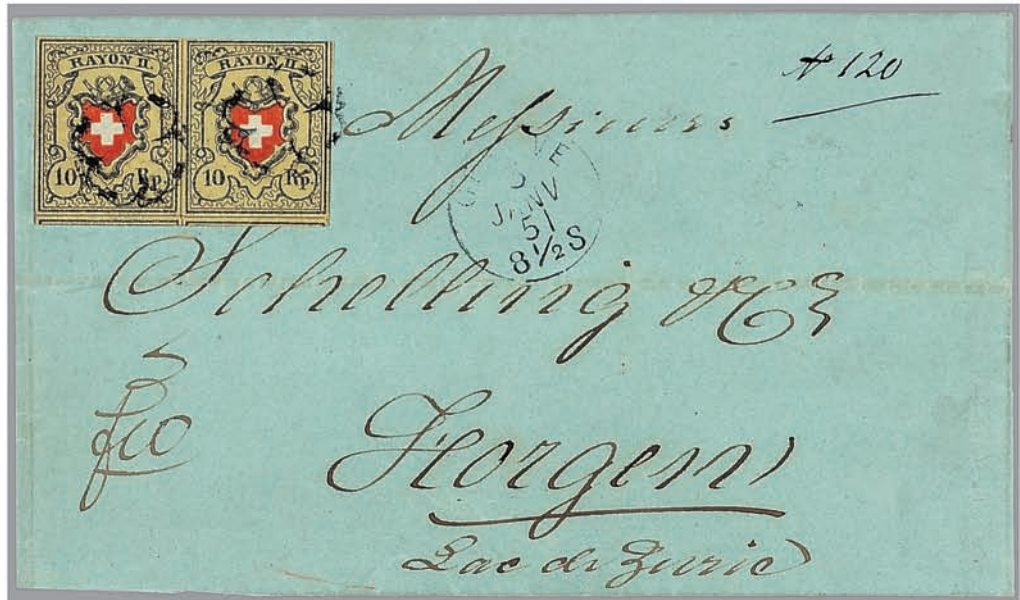 RAYON II. RAYON II.
10 Rp. 10 Rp.
№ 120
Messieurs
GENÈVE
JANV
51
8½S
Schelling & Cⁱᵉ
fco
Horgen
Lac de Zuric